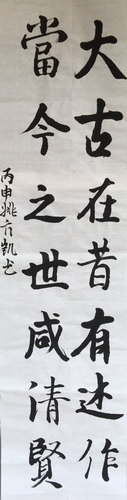 大古在昔有述作
當今之世咸清賢
丙申姚方凱书